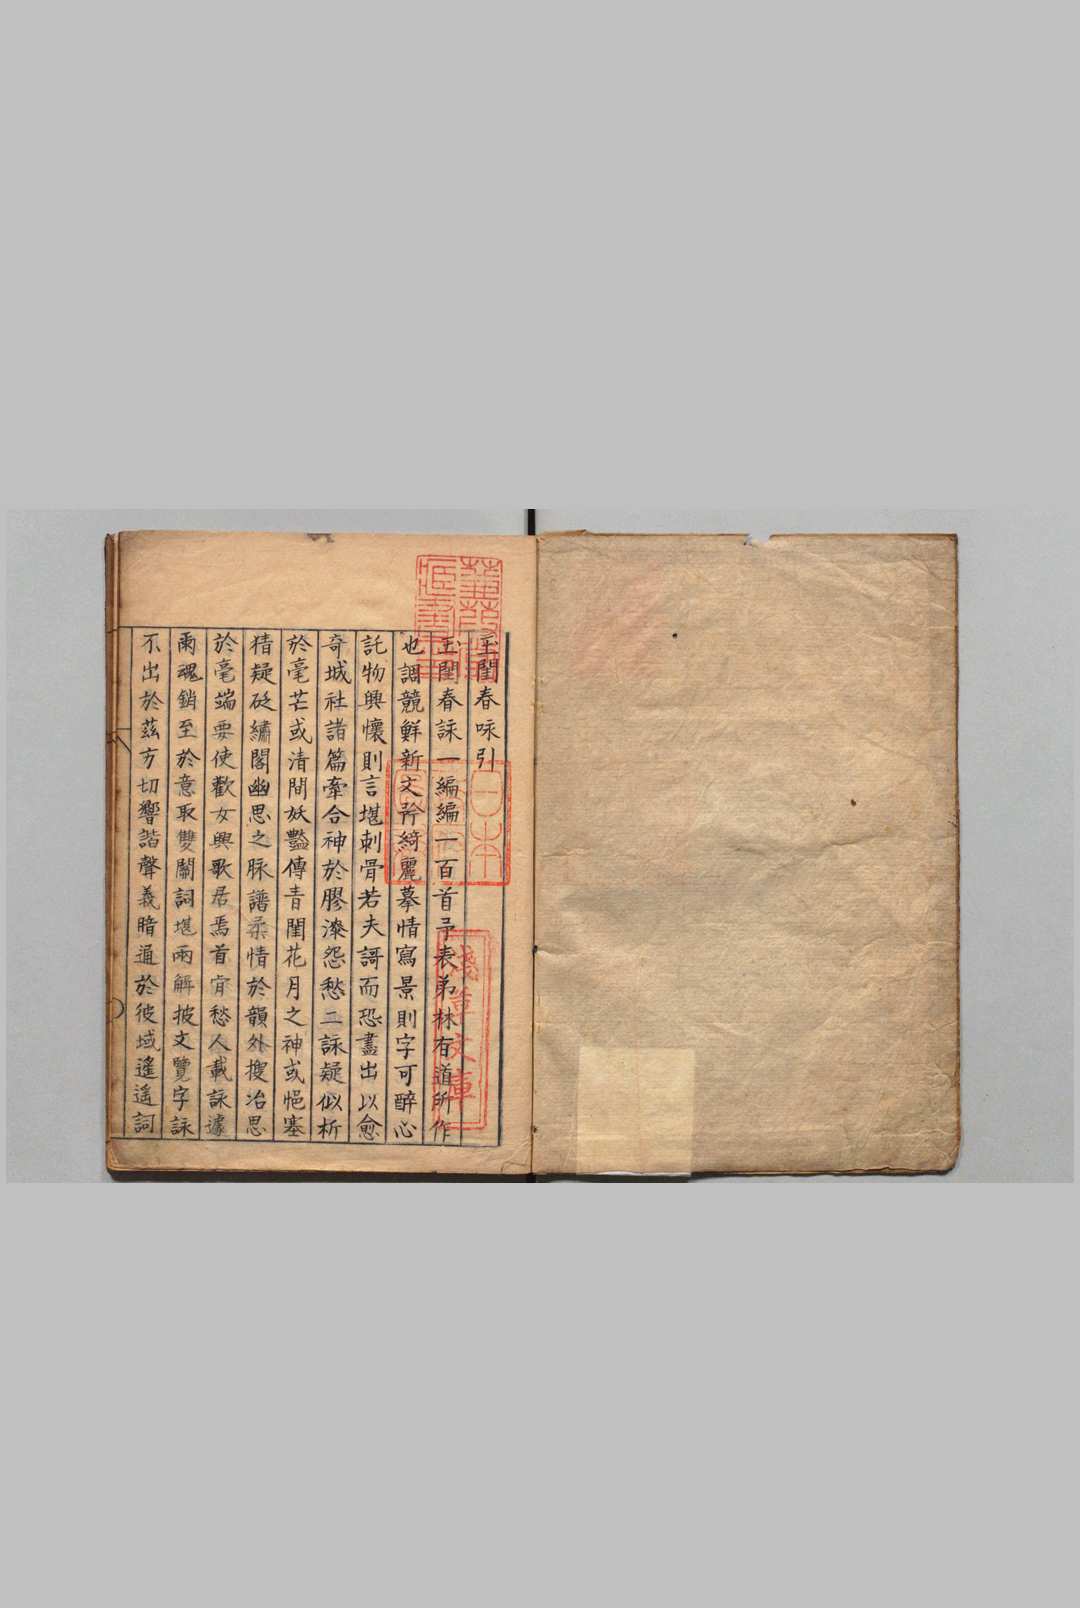 玉閨春咏引
玉閨春詠一編編一百首予表弟林有道所作
也調競鮮新文矜綺麗摹情寫景則字可醉心
託物興懷則言堪刺骨若夫謌而恐盡出以愈
奇城社諸篇牽合神於膠漆怨愁二詠疑似析
於毫芒或清間妖豔傳青閨花月之神或悒塞
猜疑砭繡閣幽思之脉譜柔情於韻外搜冶思
於毫端要使歡女興歌居焉首宵愁人載詠遽
爾魂銷至於意取雙關詞堪兩解披文覽字詠
不出於茲方切響諧聲義暗通於彼域遙遙詞
淺草文庫